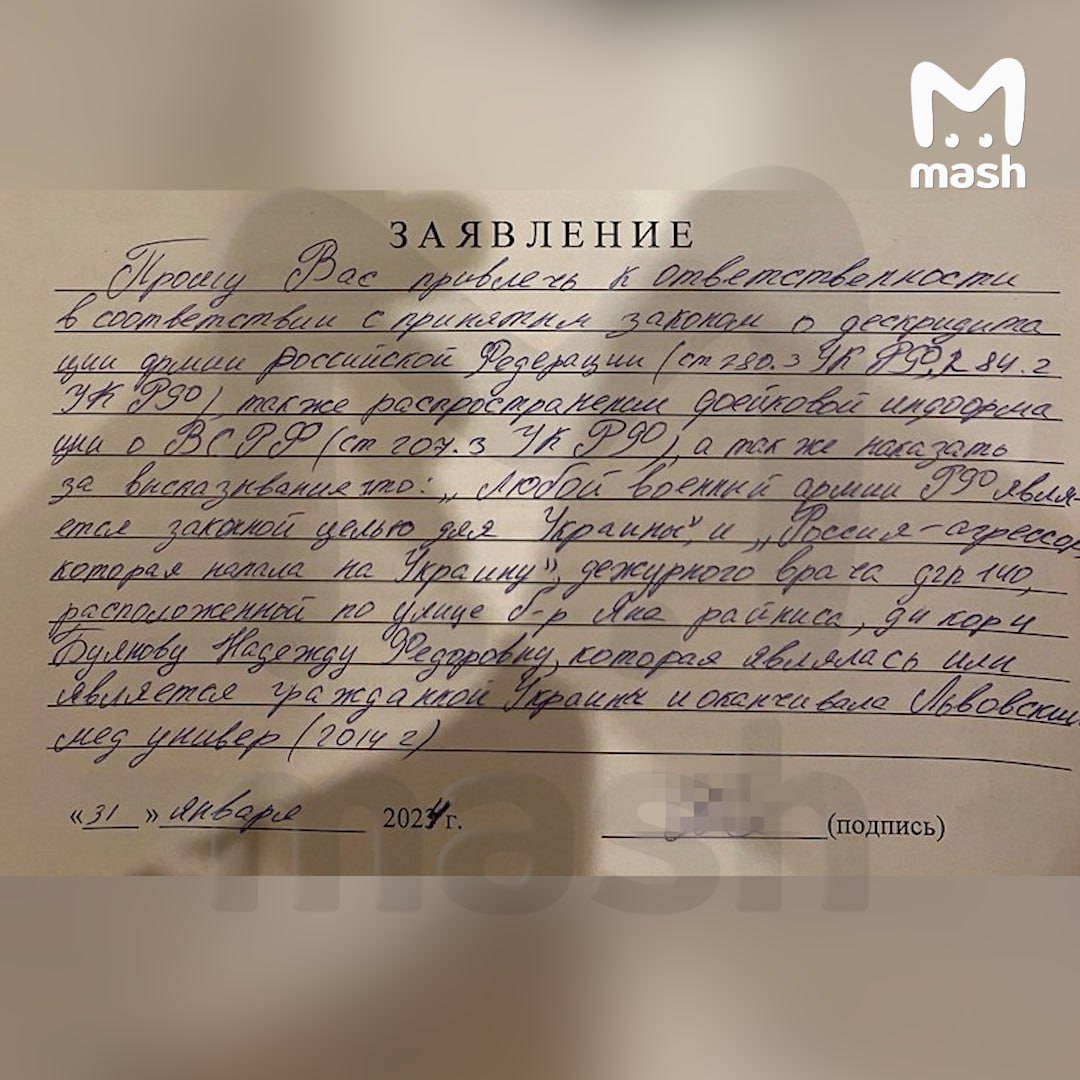 mash
ЗАЯВЛЕНИЕ
Прошу Вас привлечь к ответственности
в соответствии с принятым законом о дескридита
ции армии Российской Федерации (ст 280.3 УК РФ, 284.2
УК РФ), также распространении фейковой информа
ции о ВС РФ (ст 207.3 УК РФ), а так же наказать
за высказывание что: „Любой военный армии РФ явля-
ется законной целью для Украины", и „Россия-агрессор
которая напала на Украину", дежурного врача дгп 140,
расположенной по улице б-р Яна райниса, д4 кор4
Буянову Надежду Федоровну, которая являлась или
является гражданкой Украины и оканчивала Львовский
мед универ (2014 г)
«31» января 2024 г. (подпись)
mash